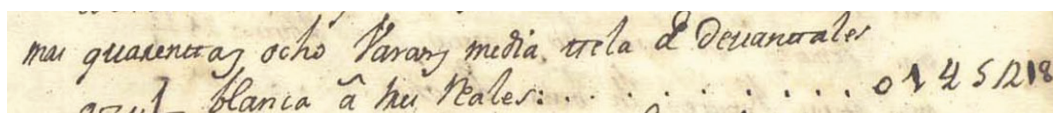 mas quarenttaȷ ocho Varaȷ media ttela de Deuanttales
azul blanca â treꝭ Reales: . . . . . . . . . . 0 1 4 5 17 18